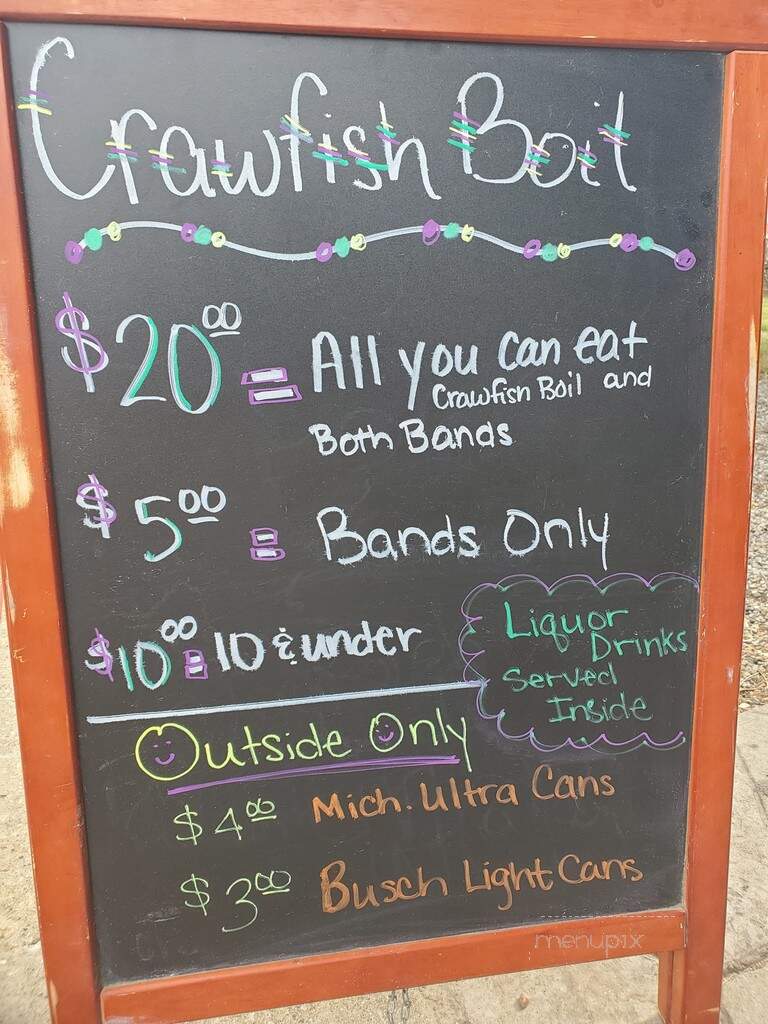 Crawfish Boil
$20.00 = All you can eat
Crawfish Boil and
Both Bands
$5.00 = Bands Only
$10.00 = 10 & under
Liquor
Drinks
Served
Inside
Outside Only
$4.00 Mich. Ultra Cans
$3.00 Busch Light Cans
menupix